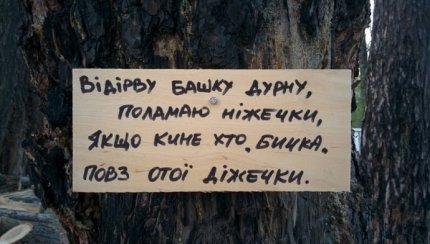 ВІДІРВУ БАШКУ ДУРНУ,
ПОЛАМАЮ НІЖЕЧКИ,
ЯКЩО КИНЕ ХТО . БИЧКА .
ПОВЗ ОТОЇ ДІЖЕЧКИ.